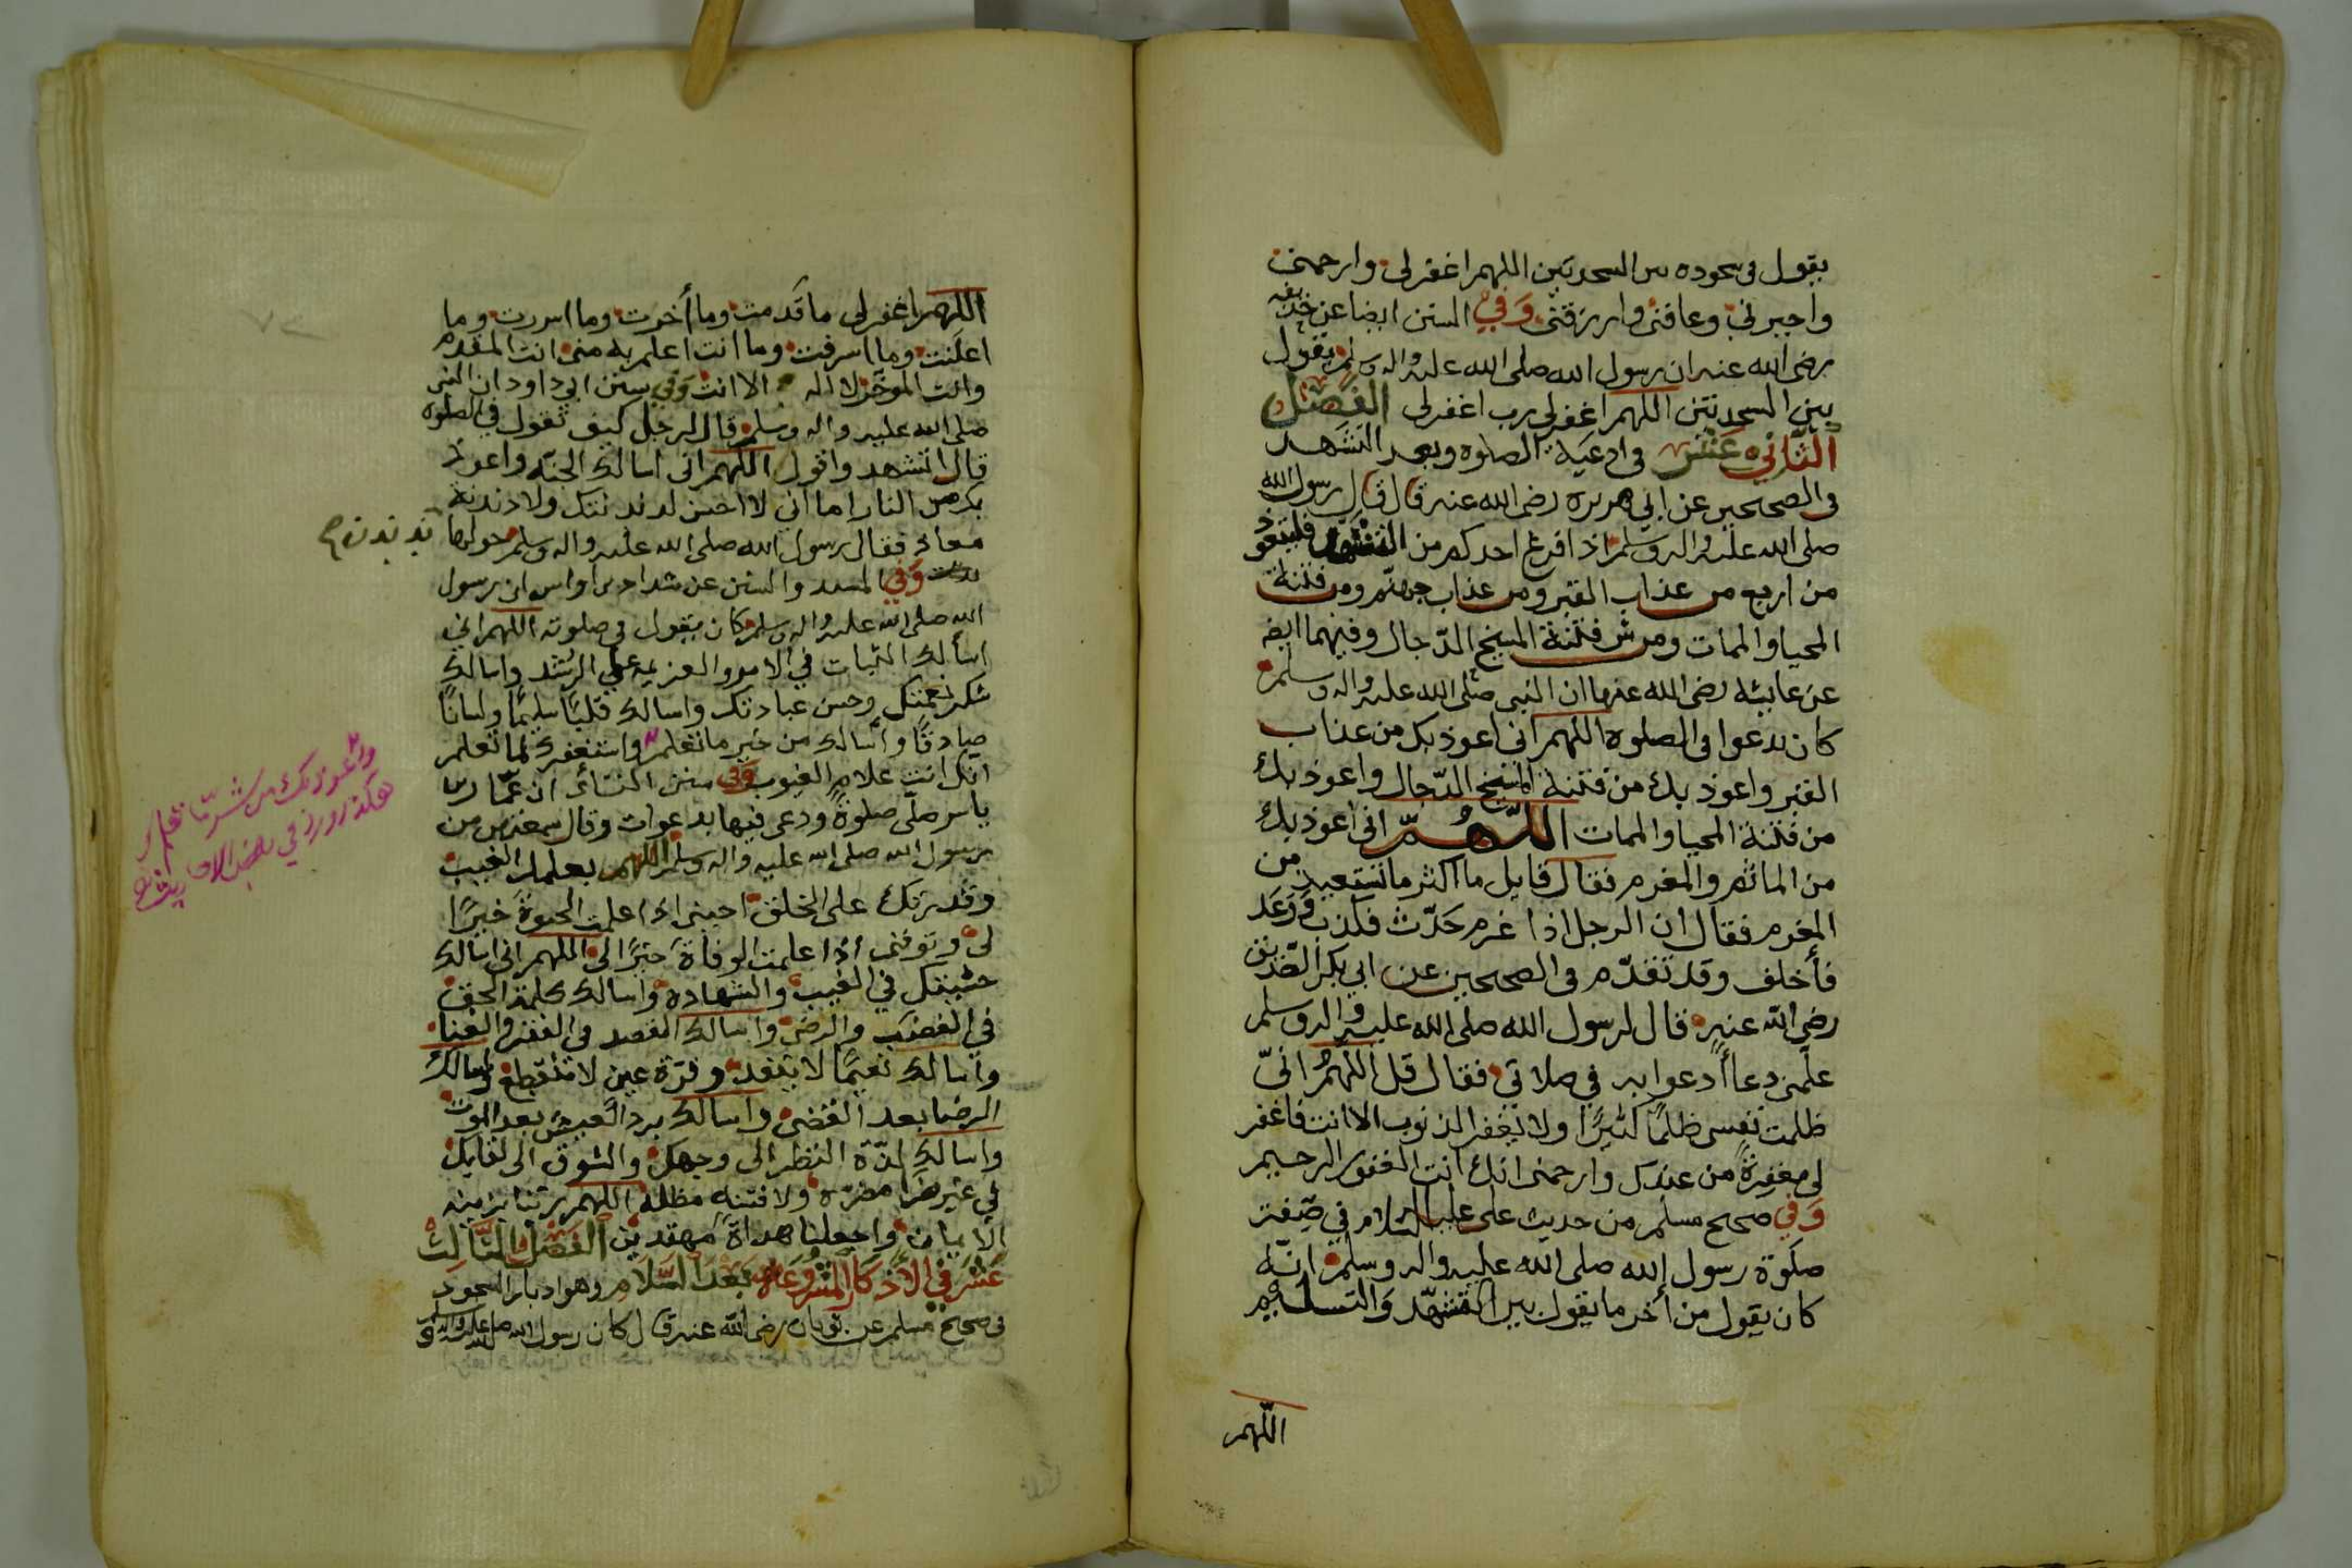 يقول في سجوده بين السجدتين اللهم اغفر لي وارحمني
واجبرني وعافني وارزقني وفي السنن ايضا عن حذيفه
رضي الله عنه ان رسول الله صلى الله عليه واله وسلم يقول
بين السجدتين اللهم اغفر لي رب اغفر لي الفصل
الثاني عشر في ادعية الصلوه وبعد التشهد
في الصحيحين عن ابي هريره رضي الله عنه قال قال رسول الله
صلى الله عليه واله وسلم اذا فرغ احدكم من التشهد فليتعوذ
من اربع من عذاب القبر ومن عذاب جهنم ومن فتنة
المحيا والممات ومن شر فتنة المسيح الدجال وفيهما ايضا
عن عايشه رضي الله عنها ان النبي صلى الله عليه واله وسلم
كان يدعوا في الصلوة اللهم اني اعوذ بك من عذاب
القبر واعوذ بك من فتنة المسيح الدجال واعوذ بك
من فتنة المحيا والممات اللهم اني اعوذ بك
من الماثم والمغرم فقال قايل ما اكثر ما تستعيذ من
المغرم فقال ان الرجل اذا غرم حدّث فكذب ووعد
فأخلف وقد تقدّم في الصحيحين عن ابي بكر الصديق
رضي الله عنه قال لرسول الله صلى الله عليه واله وسلم
علّمني دعاأ أدعوا به في صلاتي فقال قل اللهم انّي
ظلمت نفسي ظلمًا كثيرًا ولا يغفر الذنوب الا انت فاغفر
لي مغفرةً من عندك وارحمني انك انت الغفور الرحيم
وفي صحيح مسلم من حديث علي عليه السلام في صفة
صلوة رسول الله صلى الله عليه واله وسلم انّه
كان يقول من أخر ما يقول بين التشهّد والتسليم
اللّهم
اللهم اغفر لي ما قدمت وما أخرت وما اسررت وما
اعلنت وما اسرفت وما انت اعلم به مني انت المقدم
وانت الموخر لا اله الا انت وفي سنن ابي داود ان النبي
صلى الله عليه واله وسلم قال لرجل كيف تقول في الصلوه
قال اتشهد واقول اللهم اني اسالك الجنّه واعوذ
بك من النار اما اني لا احسن لدندنتك ولا دندنة
معاذ فقال رسول الله صلى الله عليه واله وسلم حولها
ندندن وفي المسند والسنن عن شداد بن اوس ان رسول
الله صلى الله عليه واله وسلم كان يقول في صلوته اللهم اني
اسألك الثبات في الامور والعزيمه على الرشد واسالك
شكر نعمتك وحسن عبادتك واسالك قلبًا سليمًا ولسانًا
صادقًا وأسالك من خير ما تعلم واستغفرك لما تعلم
انك انت علام الغيوب وفي سنن النسائي ان عمّار بن
ياسر صلّى صلوةً ودعى فيها بدعوات وقال سمعتهن من
رسول الله صلى الله عليه واله وسلم اللهم بعلمك الغيب
وقدرتك على الخلق احيني اذا علمت الحيوة خيرًا
لي وتوفني اذا علمت الوفاة خيرًا لي اللهم اني اسالك
خشيتك في الغيب والشهادة واسالك كلمة الحق
في الغضب والرضى واسالك القصد في الفقر والغنا
واسالك نعيمًا لا ينفد وقرّة عين لا تنقطع واسالك
الرضا بعد القضى واسالك برد العيش بعد الموت
واسالك لذّة النظر الى وجهك والشوق الى لقايك
في غير ضرا مضرّه ولا فتنه مظله اللهم زينا بزينه
الايمان واجعلنا هداةً مهتدين الفصل الثالث
عشر في الأذكار المشروعه بعد السّلام وهو ادبار السجود
في صحيح مسلم عن ثوبان رضي الله عنه قال كان رسول الله صلى الله عليه واله وسلم
واعوذ بك من شر مّا تعلم
هكذا ورد في بعض الاحاديث